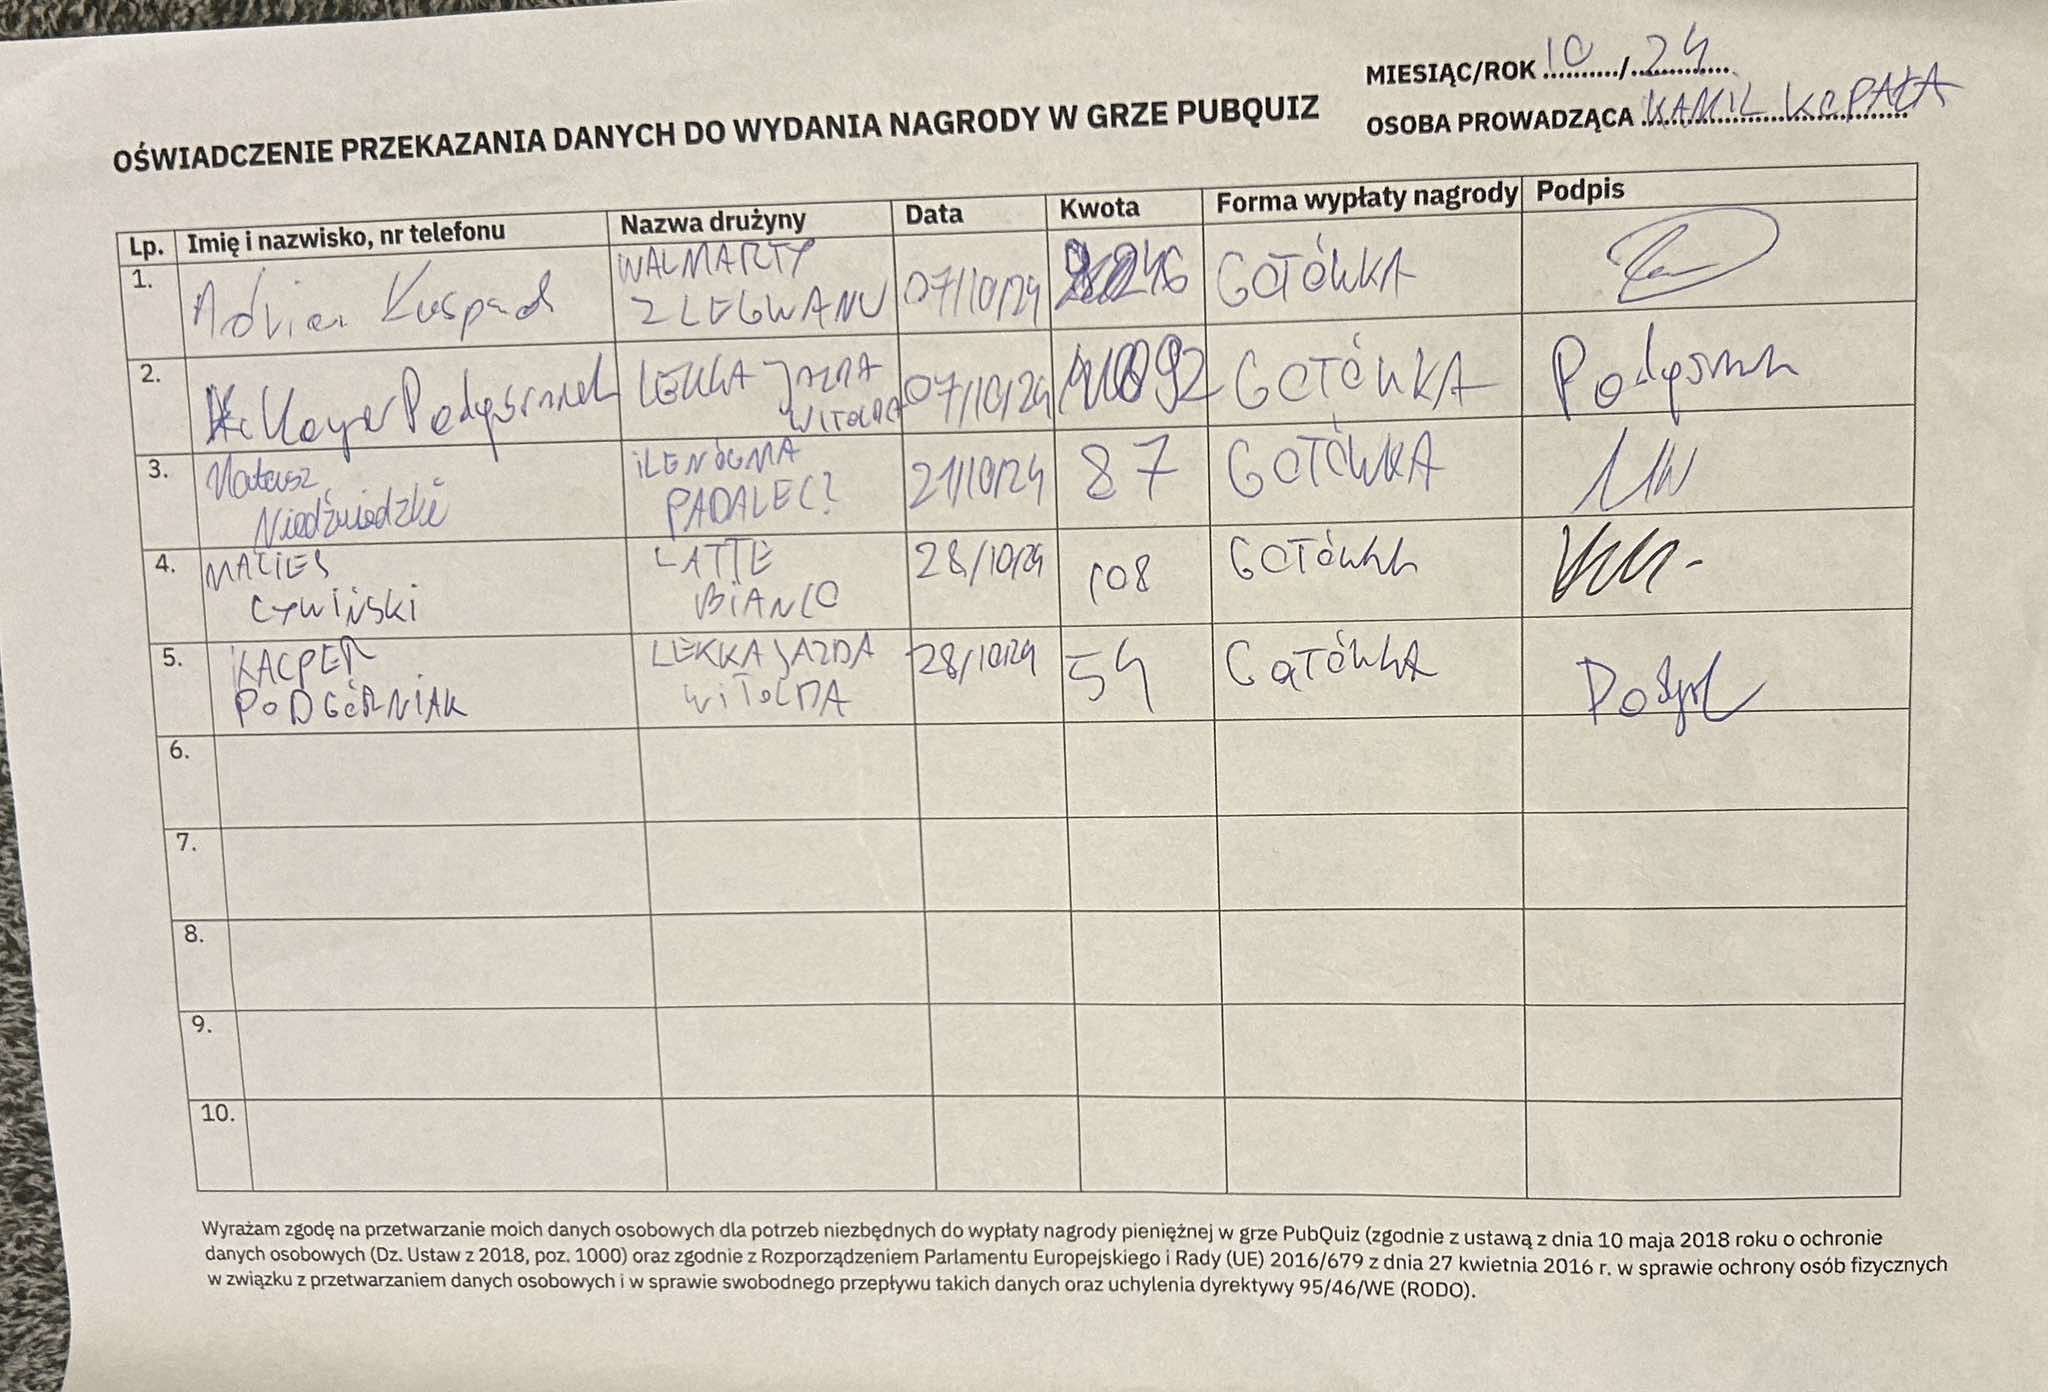 MIESIĄC/ROK 10/24
OSOBA PROWADZĄCA KAMIL KOPAŁA
OŚWIADCZENIE PRZEKAZANIA DANYCH DO WYDANIA NAGRODY W GRZE PUBQUIZ
Lp. Imię i nazwisko, nr telefonu Nazwa drużyny Data Kwota Forma wypłaty nagrody Podpis
1. Adrian WALMARTY
Z LEGWANU 07/10/24 246 GOTÓWKA
2. LEKKA JAZDA
WITOLDA 07/10/24 92 GOTÓWKA
3. Mateusz
Niedźwiedzki iLENÓGMA
PADALEC? 21/10/24 87 GOTÓWKA
4. MACIEJ
CYWIŃSKI LATTE
BIANCO 28/10/24 108 GOTÓWKA
5. KACPER
PODGÓRNIAK LEKKA JAZDA
WITOLDA 28/10/24 54 GOTÓWKA
6.
7.
8.
9.
10.
Wyrażam zgodę na przetwarzanie moich danych osobowych dla potrzeb niezbędnych do wypłaty nagrody pieniężnej w grze PubQuiz (zgodnie z ustawą z dnia 10 maja 2018 roku o ochronie
danych osobowych (Dz. Ustaw z 2018, poz. 1000) oraz zgodnie z Rozporządzeniem Parlamentu Europejskiego i Rady (UE) 2016/679 z dnia 27 kwietnia 2016 r. w sprawie ochrony osób fizycznych
w związku z przetwarzaniem danych osobowych i w sprawie swobodnego przepływu takich danych oraz uchylenia dyrektywy 95/46/WE (RODO).